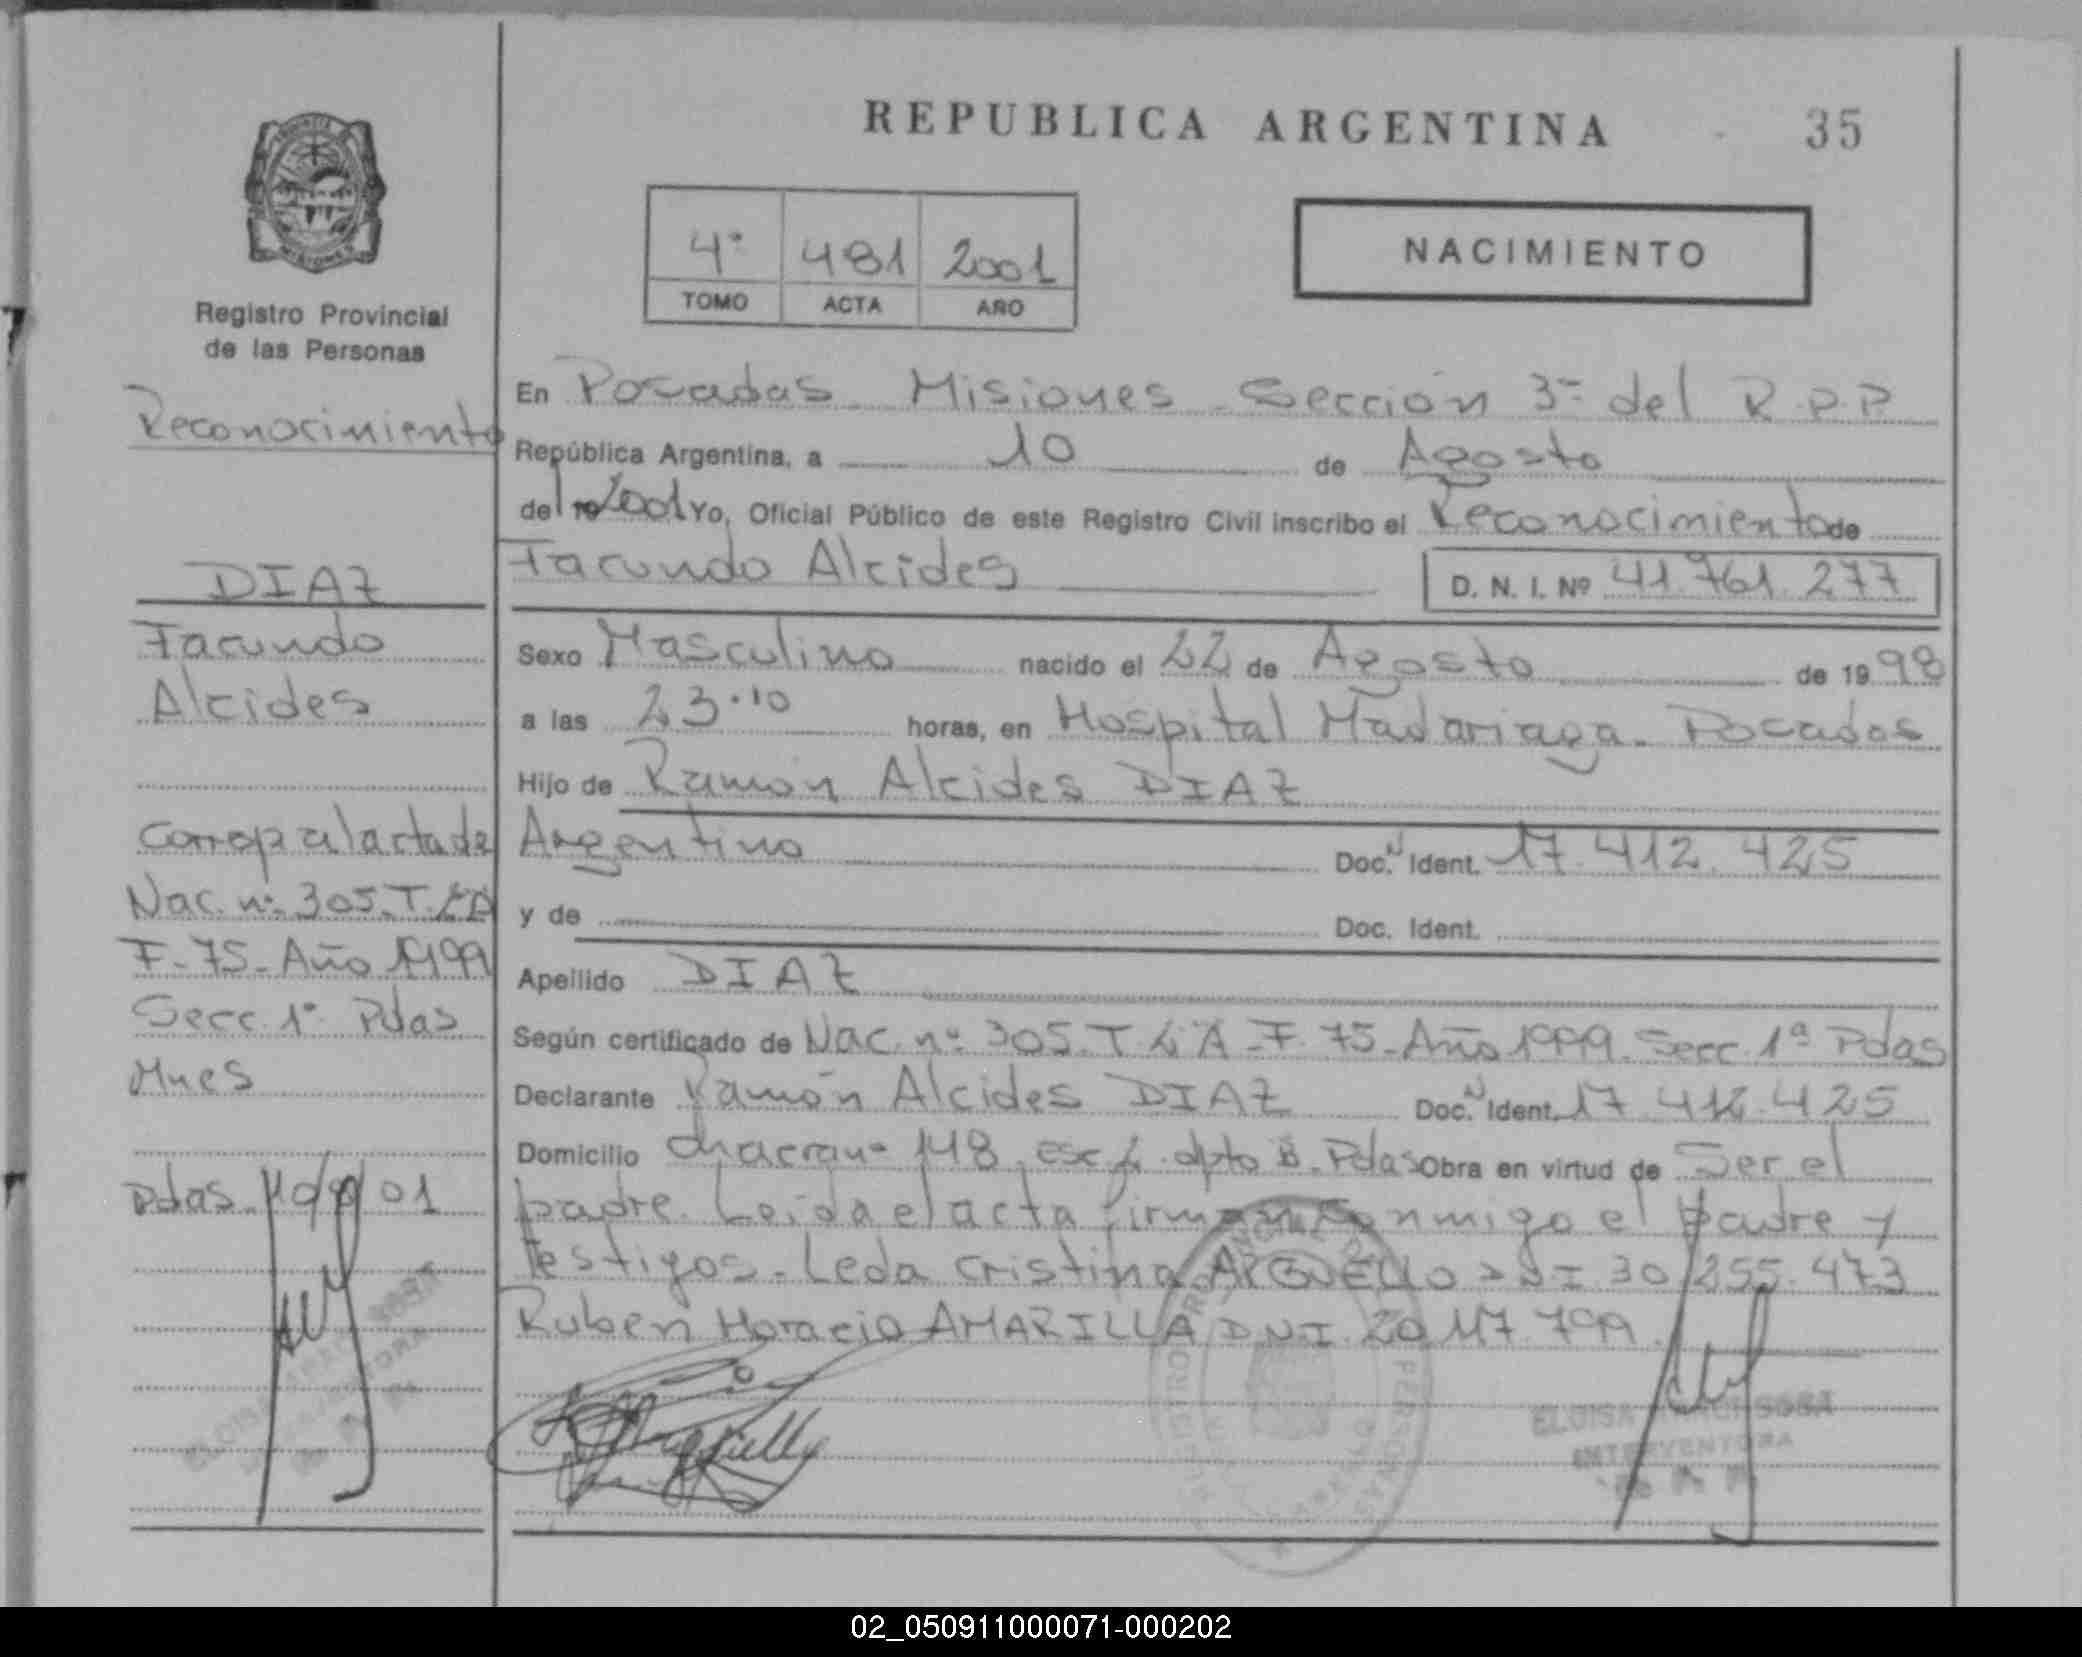 REPUBLICA ARGENTINA 35
4° 481 2001
TOMO ACTA AÑO
NACIMIENTO
Registro Provincial
de las Personas
Reconocimiento
DIAZ
Facundo
Alcides
Corresp al acta de
Nac. n° 305. T. 2°A
F-75-Año 1999
Secc. 1° Pdas
Mnes
Pdas. 10/8/01
En Posadas - Misiones - Sección 3ª del R.P.P.
República Argentina, a 10 de Agosto
del 2001 Yo, Oficial Público de este Registro Civil inscribo el Reconocimiento de
Facundo Alcides D. N. I. Nº 41.761.277
Sexo Masculino nacido el 22 de Agosto de 1998
a las 23.10 horas, en Hospital Madariaga - Posadas
Hijo de Ramón Alcides DIAZ
Argentino Doc. Ident. 17.412.425
y de Doc. Ident.
Apellido DIAZ
Según certificado de Nac. n° 305. T. 2°A - F. 75 - Año 1999. Secc. 1ª Pdas
Declarante Ramón Alcides DIAZ Doc. Ident. 17.412.425
Domicilio chacra n° 148, Esc 2. dpto B. Pdas Obra en virtud de Ser el
padre. Leída el acta firman conmigo el padre y
Testigos - Leda Cristina ARGUELLO DNI 30.255.473
Ruben Horacio AMARILLA DNI. 20.117.799.
ELOISA
INTERVENTORA
02_050911000071-000202